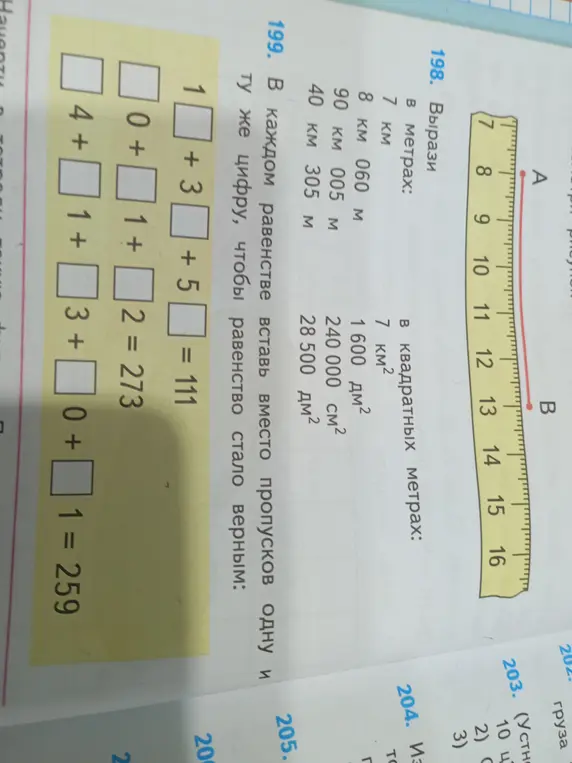 A B
7 8 9 10 11 12 13 14 15 16
198. Вырази
в метрах:
7 км
8 км 060 м
90 км 005 м
40 км 305 м
в квадратных метрах:
7 км²
1 600 дм²
240 000 см²
28 500 дм²
199. В каждом равенстве вставь вместо пропусков одну и
ту же цифру, чтобы равенство стало верным:
1□ + 3□ + 5□ = 111
□0 + □1 + □2 = 273
□4 + □1 + □3 + □0 + □1 = 259
202.
груза
203. (Устн
10 ц
2)
3)
204. Из
205.